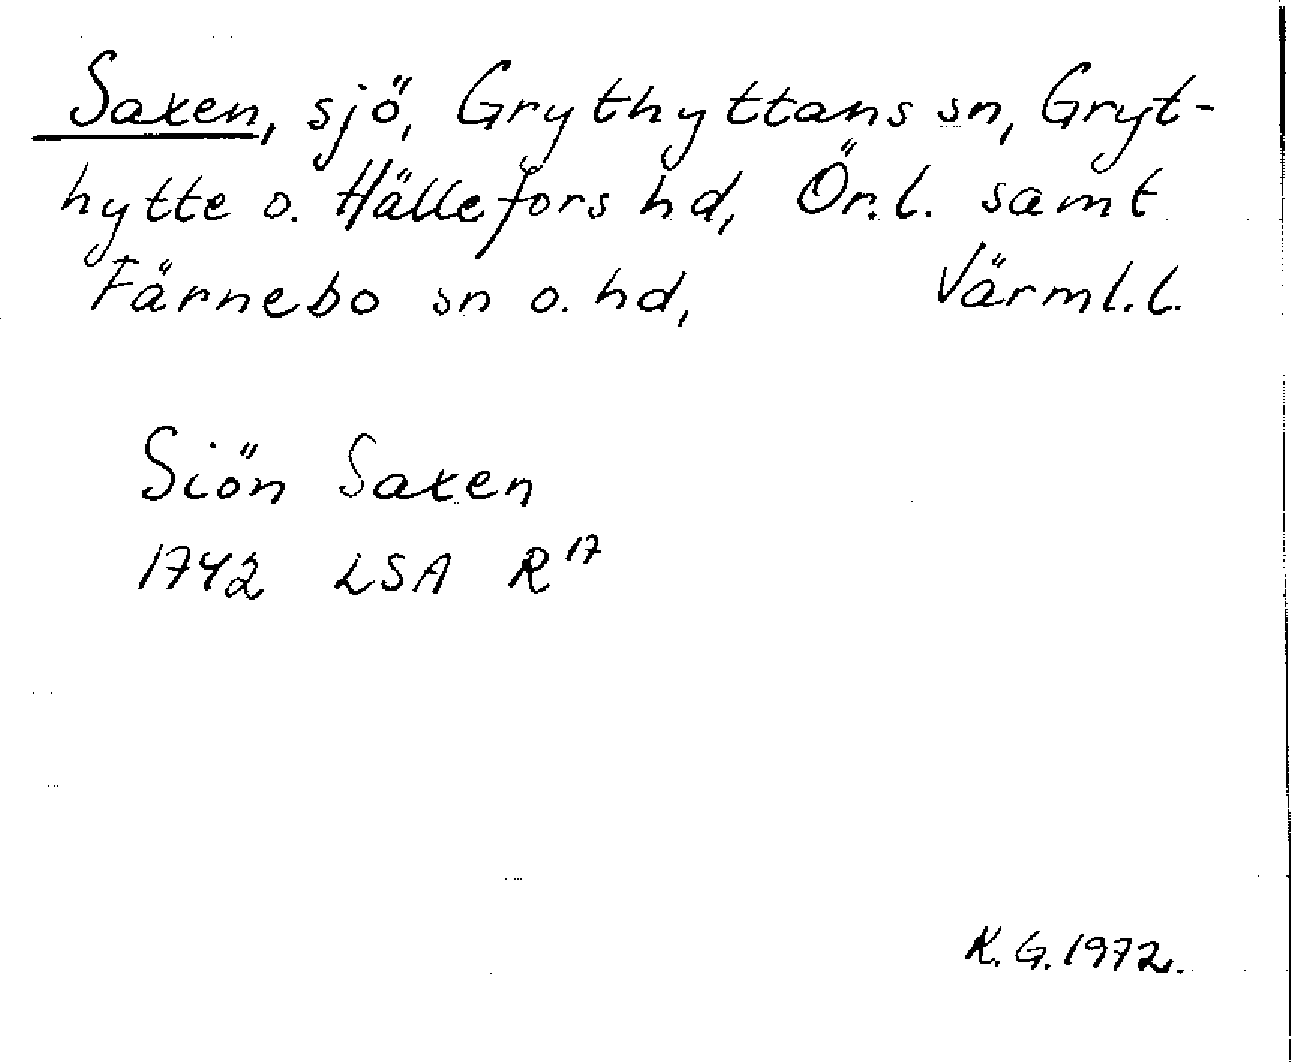 Saxen, sjö, Grythyttans sn, Gryt-
hytte o. Hällefors hd, Ör.l. samt
Färnebo sn o. hd, Värml.l.
Siön Saxen
1742 LSA R17
K.G.1972.